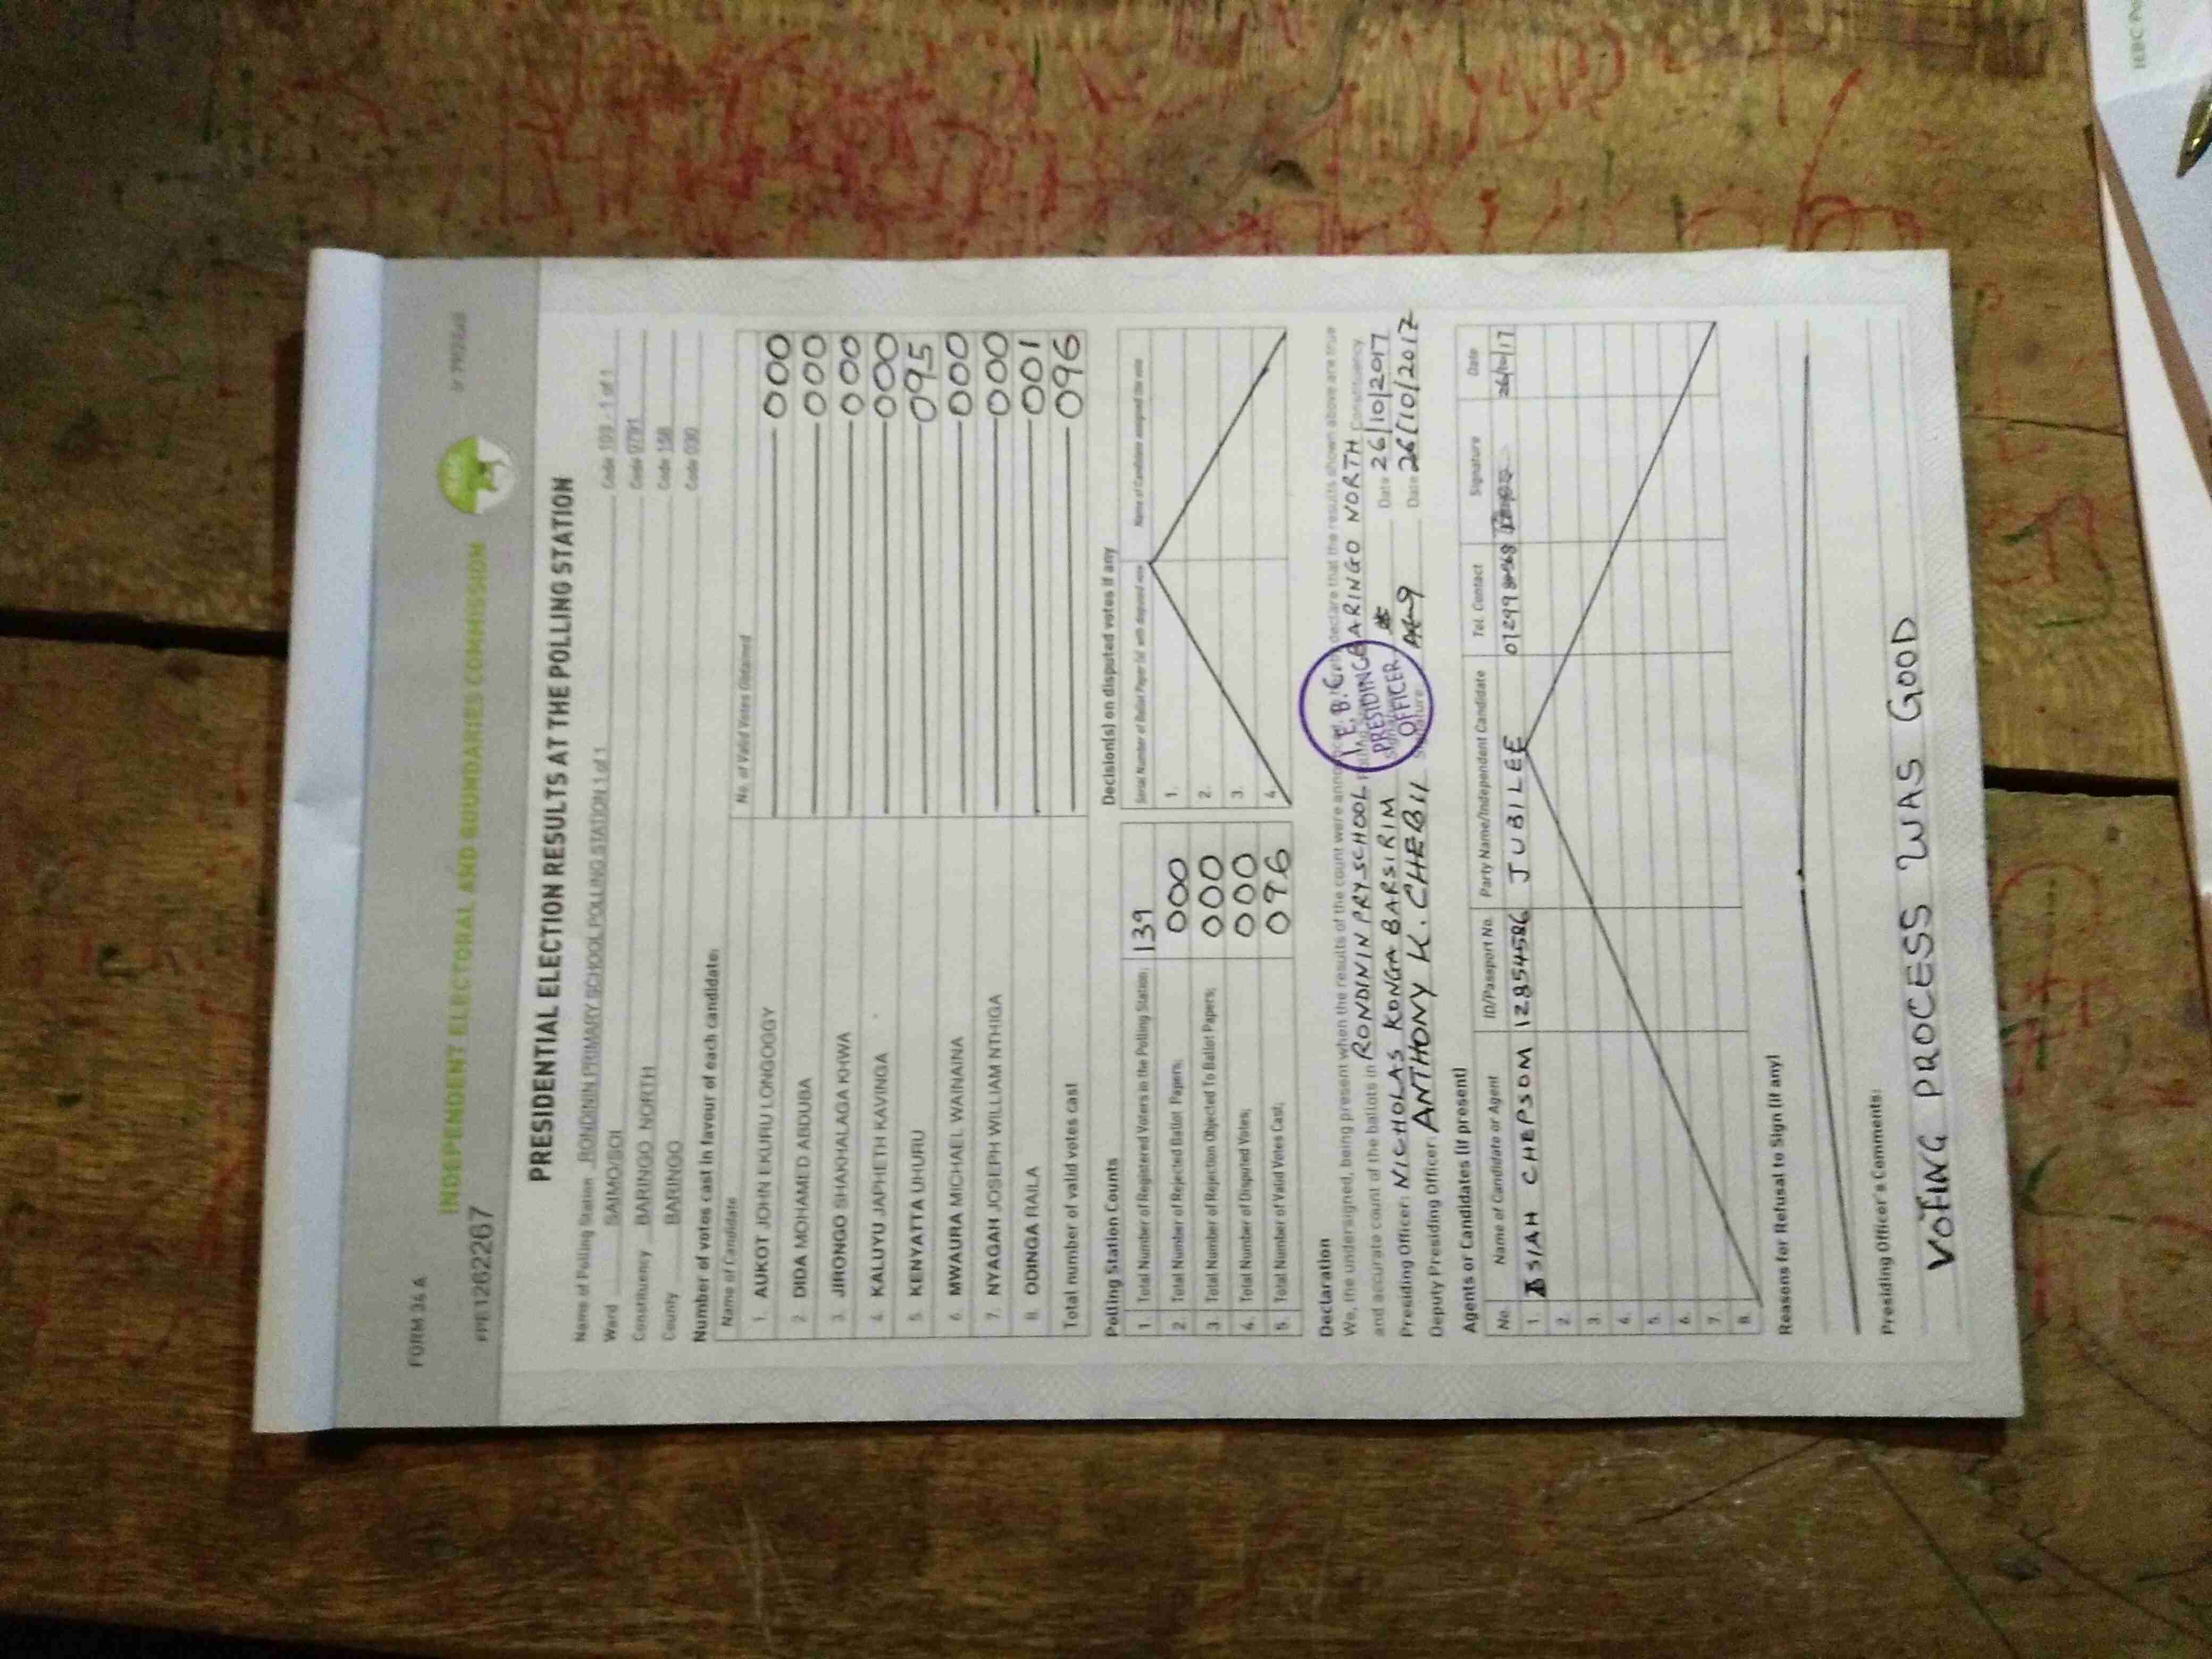 FORM 34 A
INDEPENDENT ELECTORAL AND BOUNDARIES COMMISSION
PRESIDENTIAL ELECTION RESULTS AT THE POLLING STATION
Name of Polling Station RONDININ PRIMARY SCHOOL POLLING STATION 1 of 1 Code 103 - 1 of 1
Ward SAIMO/SOI Code 0791
Constituency BARINGO NORTH Code 158
County BARINGO Code 030
Number of votes cast in favour of each candidate:
Name of Candidate No. of Valid Votes Obtained
1. AUKOT JOHN EKURU LONGOGGY 000
2. DIDA MOHAMED ABDUBA 000
3. JIRONGO SHAKHALAGA KHWA 000
4. KALUYU JAPHETH KAVINGA 000
5. KENYATTA UHURU 095
6. MWAURA MICHAEL WAINAINA 000
7. NYAGAH JOSEPH WILLIAM NTHIGA 000
8. ODINGA RAILA 001
Total number of valid votes cast 096
Polling Station Counts
1. Total Number of Registered Voters in the Polling Station; 139
2. Total Number of Rejected Ballot Papers; 000
3. Total Number of Rejection Objected To Ballot Papers; 000
4. Total Number of Disputed Votes; 000
5. Total Number of Valid Votes Cast; 096
Decision(s) on disputed votes if any
Serial Number of Ballot Paper (s) with disputed vote Name of Candidate assigned the vote
1.
2.
3.
4.
Declaration
We, the undersigned, being present when the results of the count were declare that the results shown above are true
and accurate count of the ballots in RONDININ PRY SCHOOL BARINGO NORTH Constituency
Presiding Officer: NICHOLAS KONGA BARSIRIM Date 26/10/2017
Deputy Presiding Officer: ANTHONY K. CHEBII Date 26/10/2017
I.E.B.C
PRESIDING
OFFICER
Agents or Candidates (if present)
No. Name of Candidate or Agent ID/Passport No. Party Name/Independent Candidate Tel. Contact Signature Date
1. ISIAH CHEPSOM 12854586 JUBILEE 26/10/17
2.
3.
4.
5.
6.
7.
8.
Reasons for Refusal to Sign (if any)
Presiding Officer's Comments:
VOTING PROCESS WAS GOOD